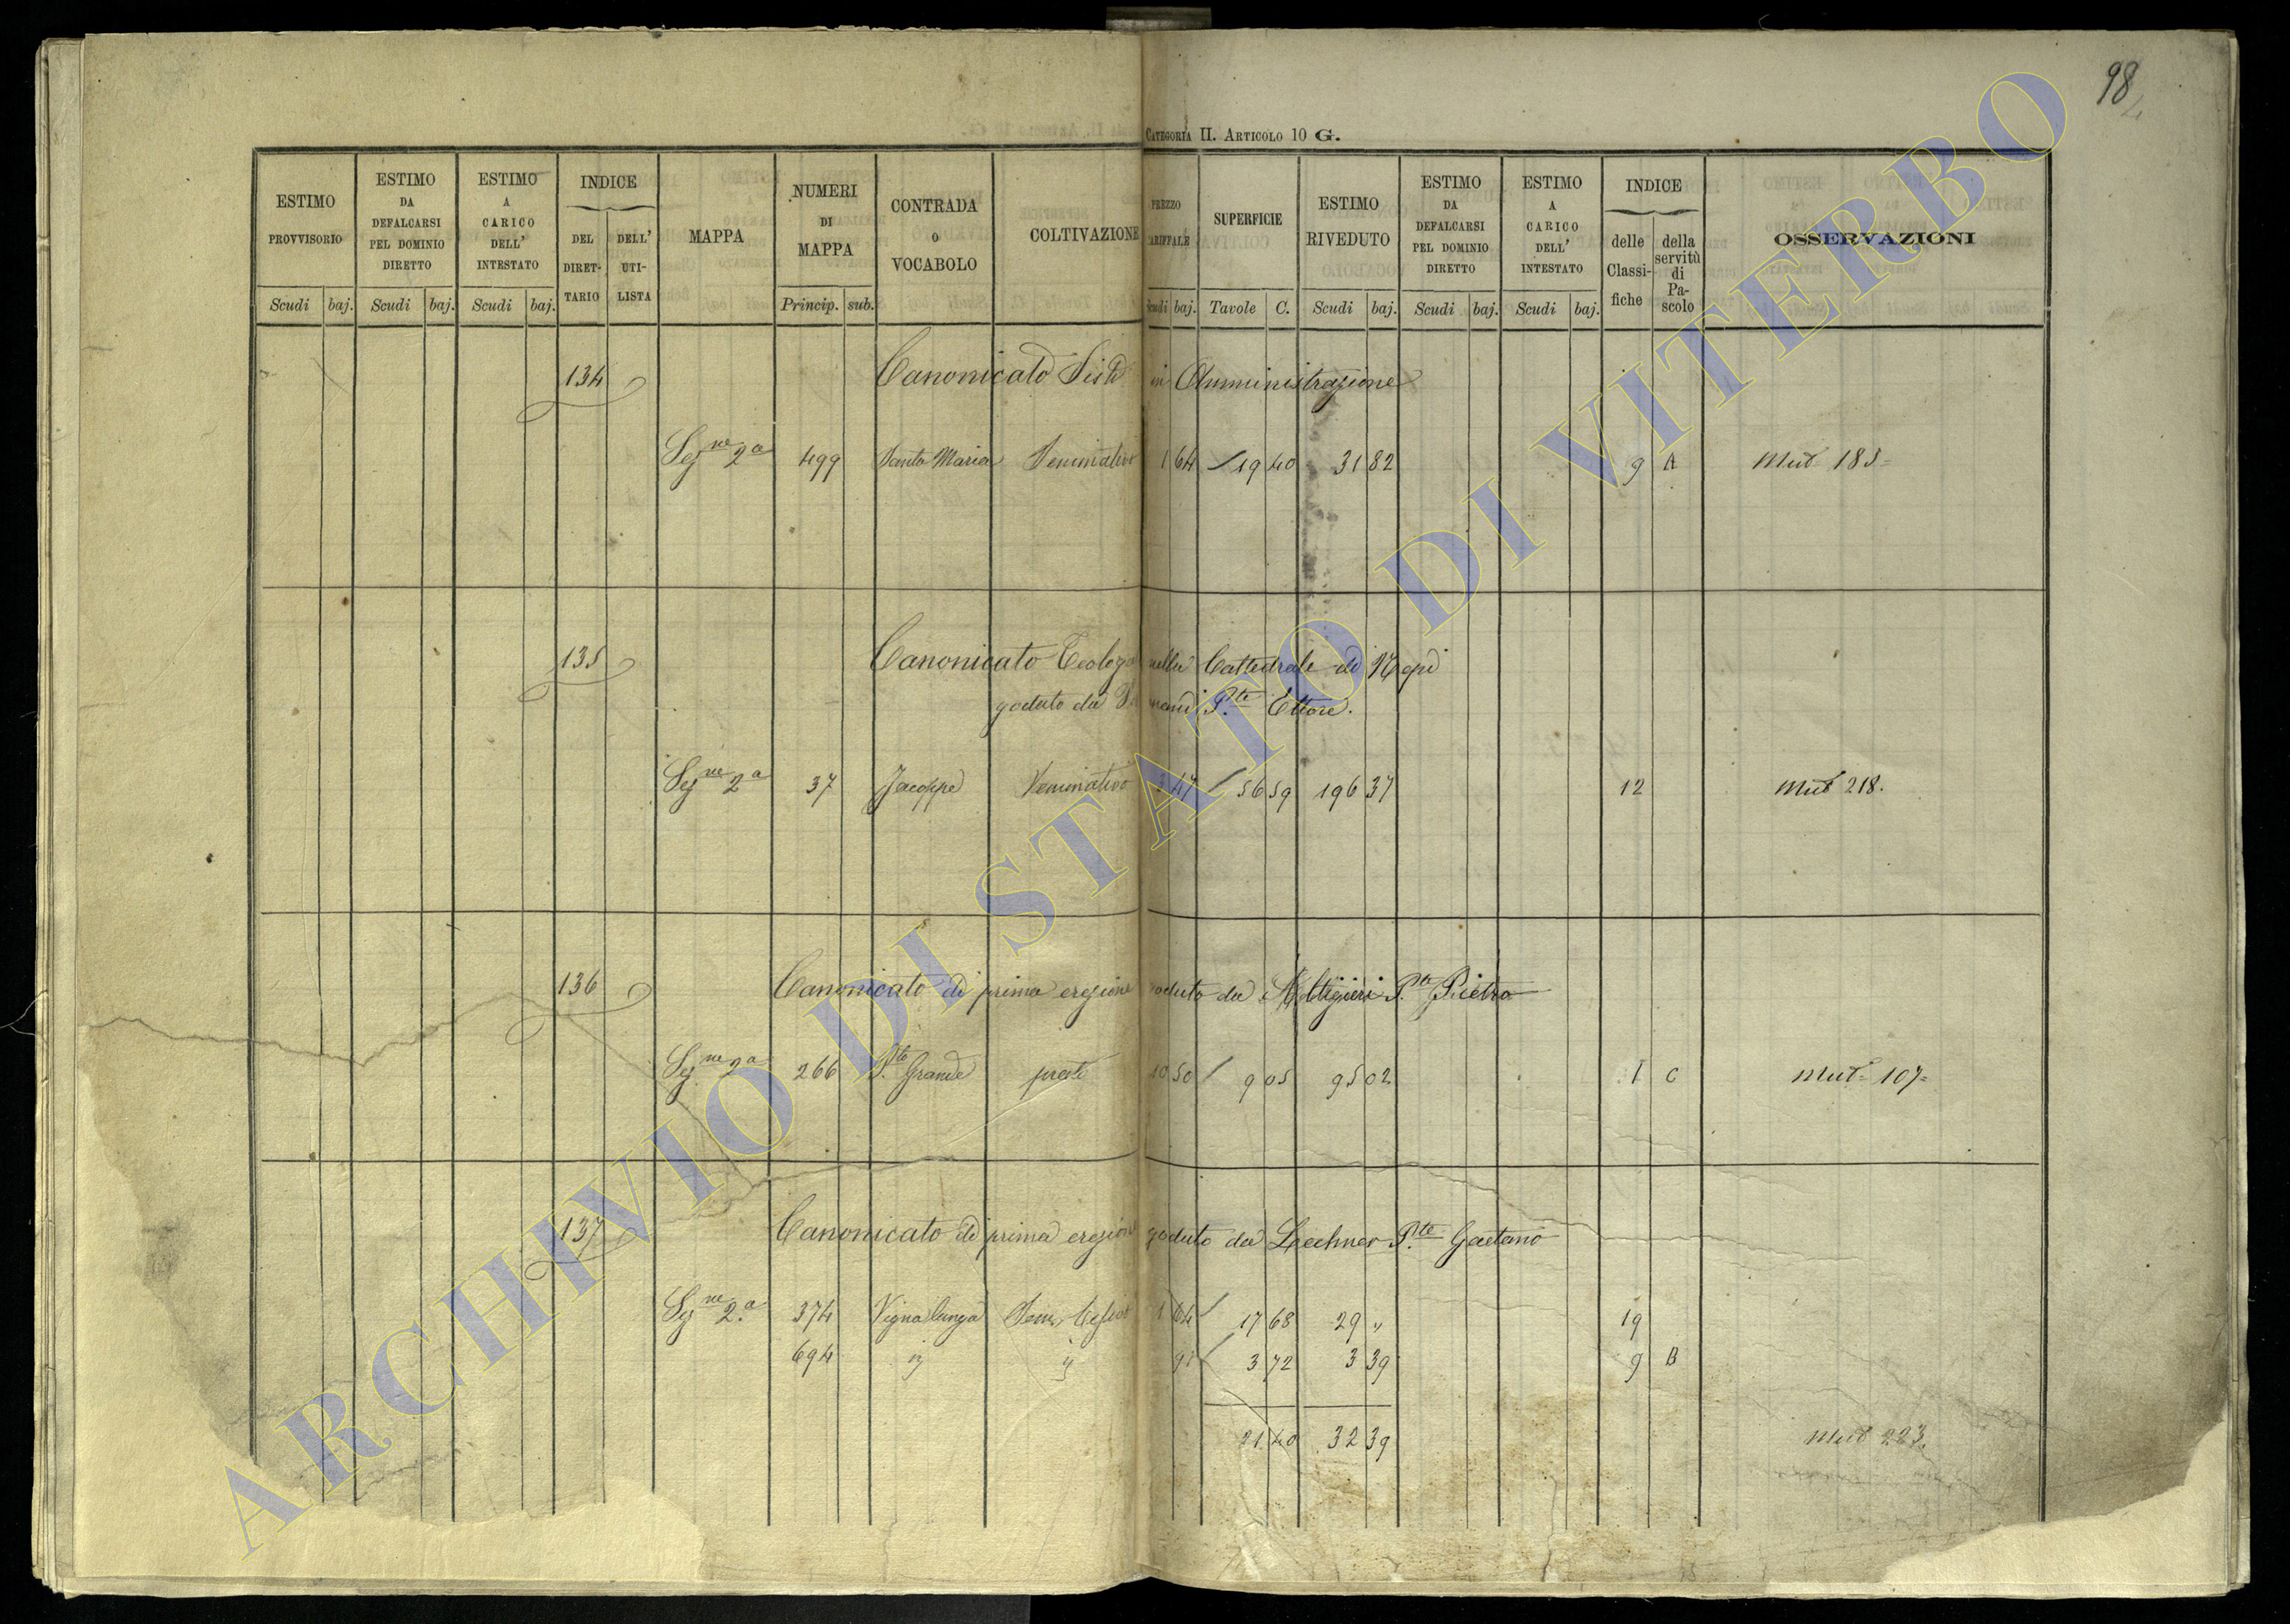 98
CATEGORIA II. ARTICOLO 10 G.
ESTIMO PROVVISORIO Scudi baj.
ESTIMO DA DEFALCARSI PEL DOMINIO DIRETTO Scudi baj.
ESTIMO A CARICO DELL' INTESTATO Scudi baj.
INDICE DEL DIRET- TARIO DELL' UTI- LISTA
MAPPA
NUMERI DI MAPPA Princip. sub.
CONTRADA O VOCABOLO
COLTIVAZIONE
PREZZO TARIFFALE Scudi baj.
SUPERFICIE Tavole C.
ESTIMO RIVEDUTO Scudi baj.
ESTIMO DA DEFALCARSI PEL DOMINIO DIRETTO Scudi baj.
ESTIMO A CARICO DELL' INTESTATO Scudi baj.
INDICE delle Classi- fiche della servitù di Pa- scolo
OSSERVAZIONI
134 Canonicato in Amministrazione
Segne 2a 499 Santa Maria Seminativo 1 64 19 40 31 82 9 A Mut 185=
135 Canonicato Teologo nella Cattedrale di Nepi
goduto da Pte Ettore.
Segne 2a 37 Jacoppe Seminativo 3 47 56 59 196 37 12 Mut 218.
136 Canonicato di prima erezione goduto da Pte Pietro
Segne 2a 266 Grande prato 10 50 9 05 95 02 1 C Mut= 107=
137 Canonicato di prima erezione goduto da Lechner Pte Gaetano
Segne 2.a 374 Vigna lunga Sem. 1 64 17 68 29 „ 19
694 91 3 72 3 39 9 B
21 40 32 39 Mut 223.
ARCHIVIO DI STATO DI VITERBO